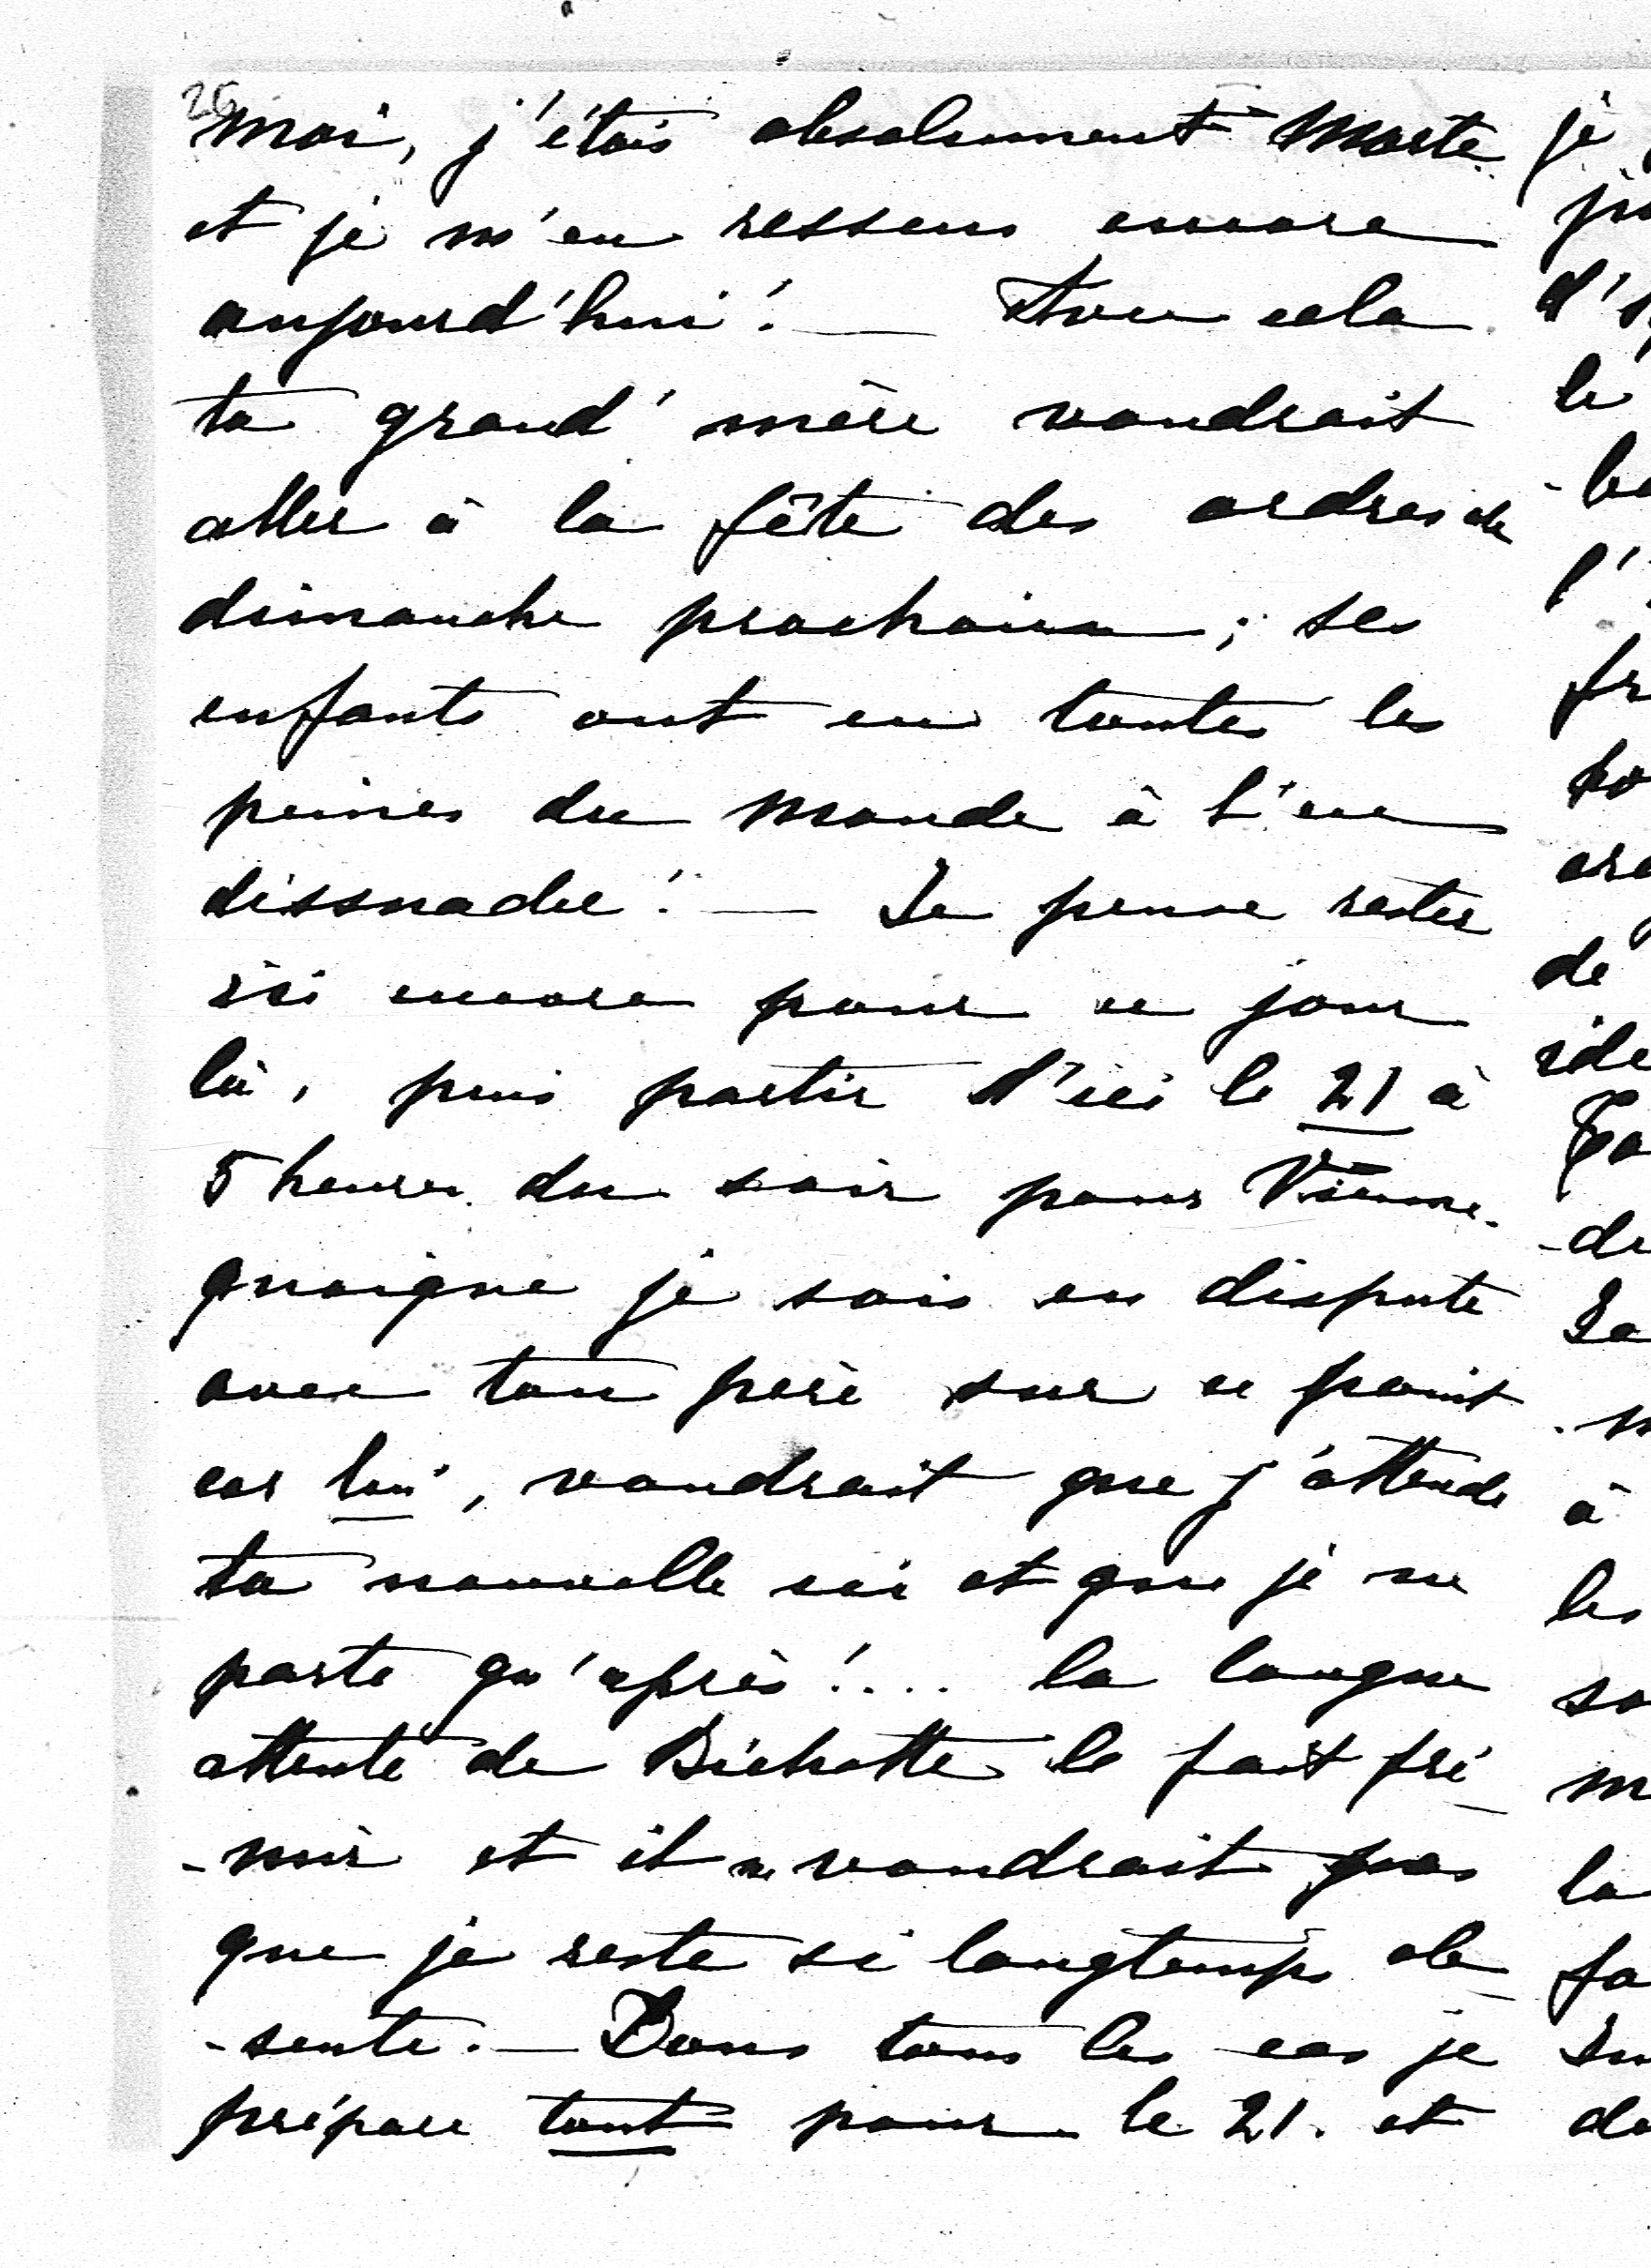 26
moi, j'étais absolument morte
et je m'en ressens encore
aujourd'hui! — Avec cela
ta grand'mère voudrait
aller à la fête des ordres de
dimanche prochain; ses
enfants ont eu toutes les
peines du monde à l'en
dissuader! — Je pense rester
ici encore pour ce jour
là, puis partir d'ici le 21 à
5 heures du soir pour Vienne.
quoique je sois en dispute
avec ton père sur ce point
car lui, voudrait que j'attende
ta nouvelle ici et que je ne
parte qu'après!.... la longue
attente de Bichette le fait fré
-mir et il ne voudrait pas
que je reste si longtemps ab
-sente. — Dans tous les cas je
prépare tout pour le 21. et
je
d'
le
l'
de
à
les
la